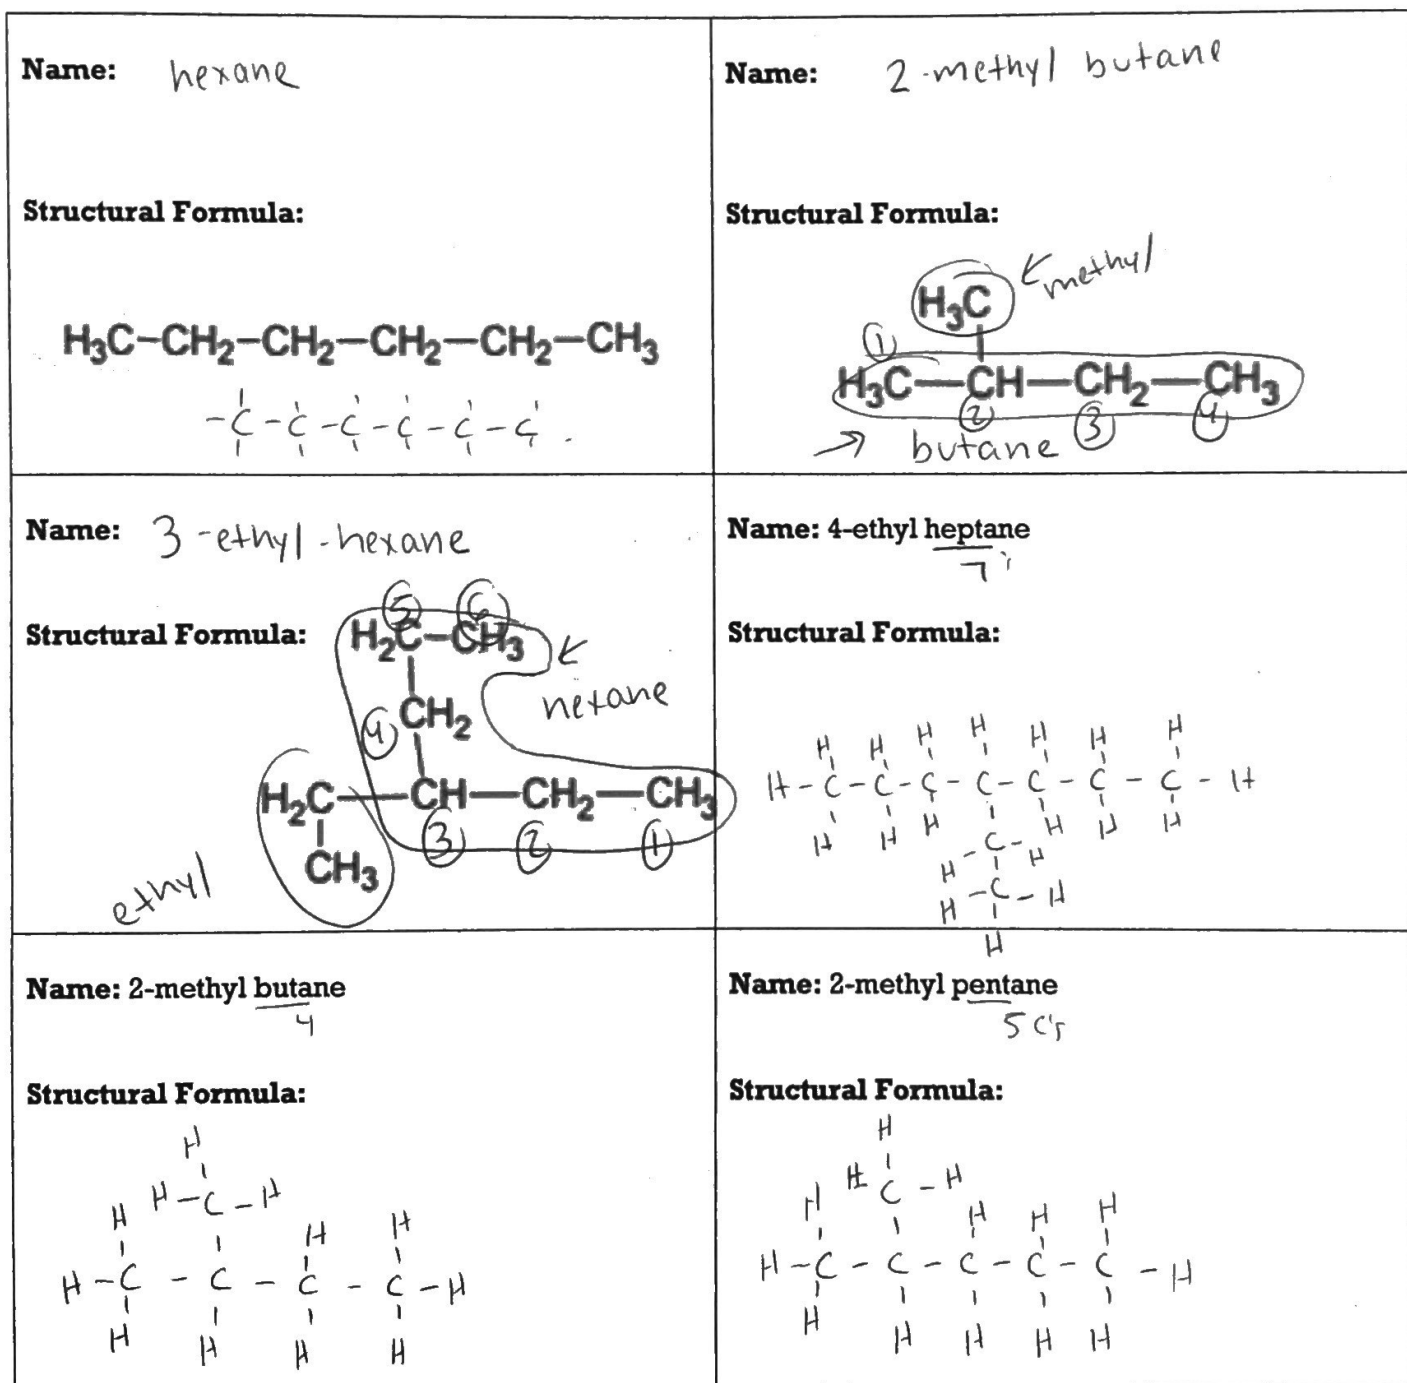 Name: hexane
Structural Formula:
H₃C-CH₂-CH₂-CH₂-CH₂-CH₃
-C-C-C-C-C-C
Name: 2-methyl butane
Structural Formula:
H₃C methyl
①
H₃C-CH-CH₂-CH₃
② ③ ④
butane
Name: 3-ethyl-hexane
Structural Formula:
⑤ ⑥
H₂C-CH₃
hexane
④ CH₂
H₂C-CH-CH₂-CH₃
③ ② ①
CH₃
ethyl
Name: 4-ethyl heptane
7
Structural Formula:
H H H H H H H
H-C-C-C-C-C-C-C-H
H H H H H H
H-C-H
H-C-H
H
Name: 2-methyl butane
4
Structural Formula:
H
H-C-H
H H H
H-C-C-C-C-H
H H H H
Name: 2-methyl pentane
5 C's
Structural Formula:
H
H C-H
H H H H
H-C-C-C-C-C-H
H H H H H